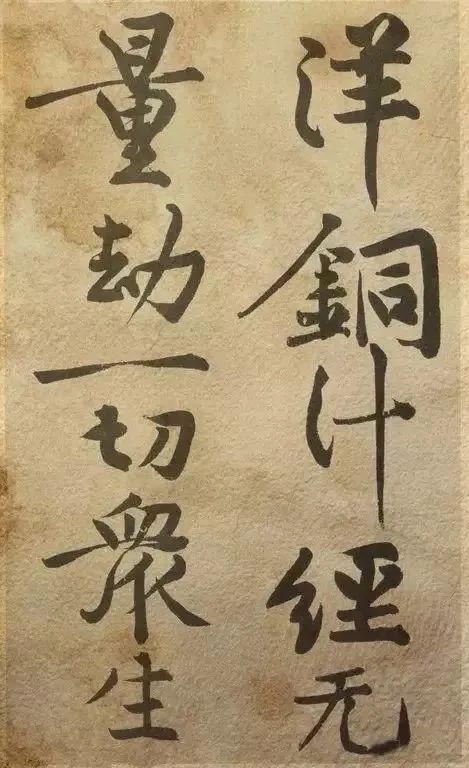 洋銅汁經无
量劫一切衆生